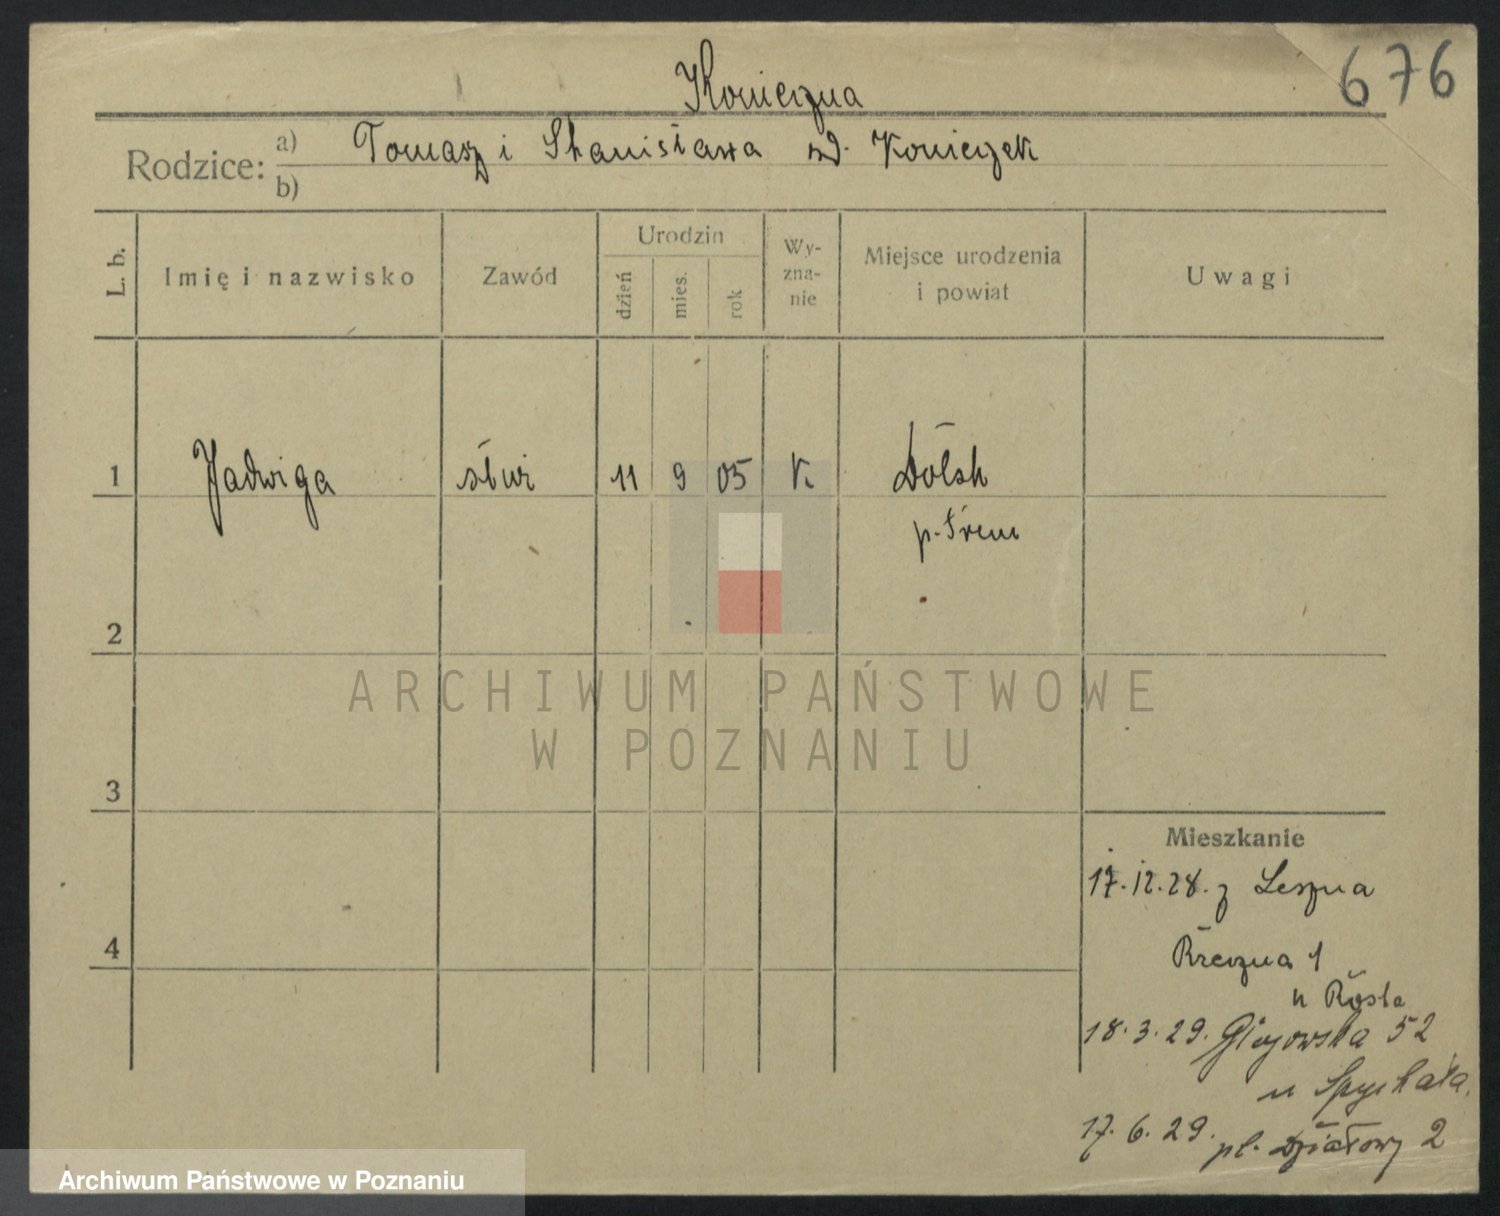 676
Konieczna
Rodzice: a) Tomasz i Stanisława zd. Konieczek
b)
L. b. Imię i nazwisko Zawód Urodzin dzień mies. rok Wy-zna-nie Miejsce urodzenia i powiat Uwagi
1 Jadwiga 11 9 05 K Dolsk
p. Śrem
2
ARCHIWUM PAŃSTWOWE
W POZNANIU
3
Mieszkanie
17.12.28. z Leszna
4
Rzeczna 1
u
18.3.29. Głogowska 52
u Spychała
17.6.29. pl. Działowy 2
Archiwum Państwowe w Poznaniu